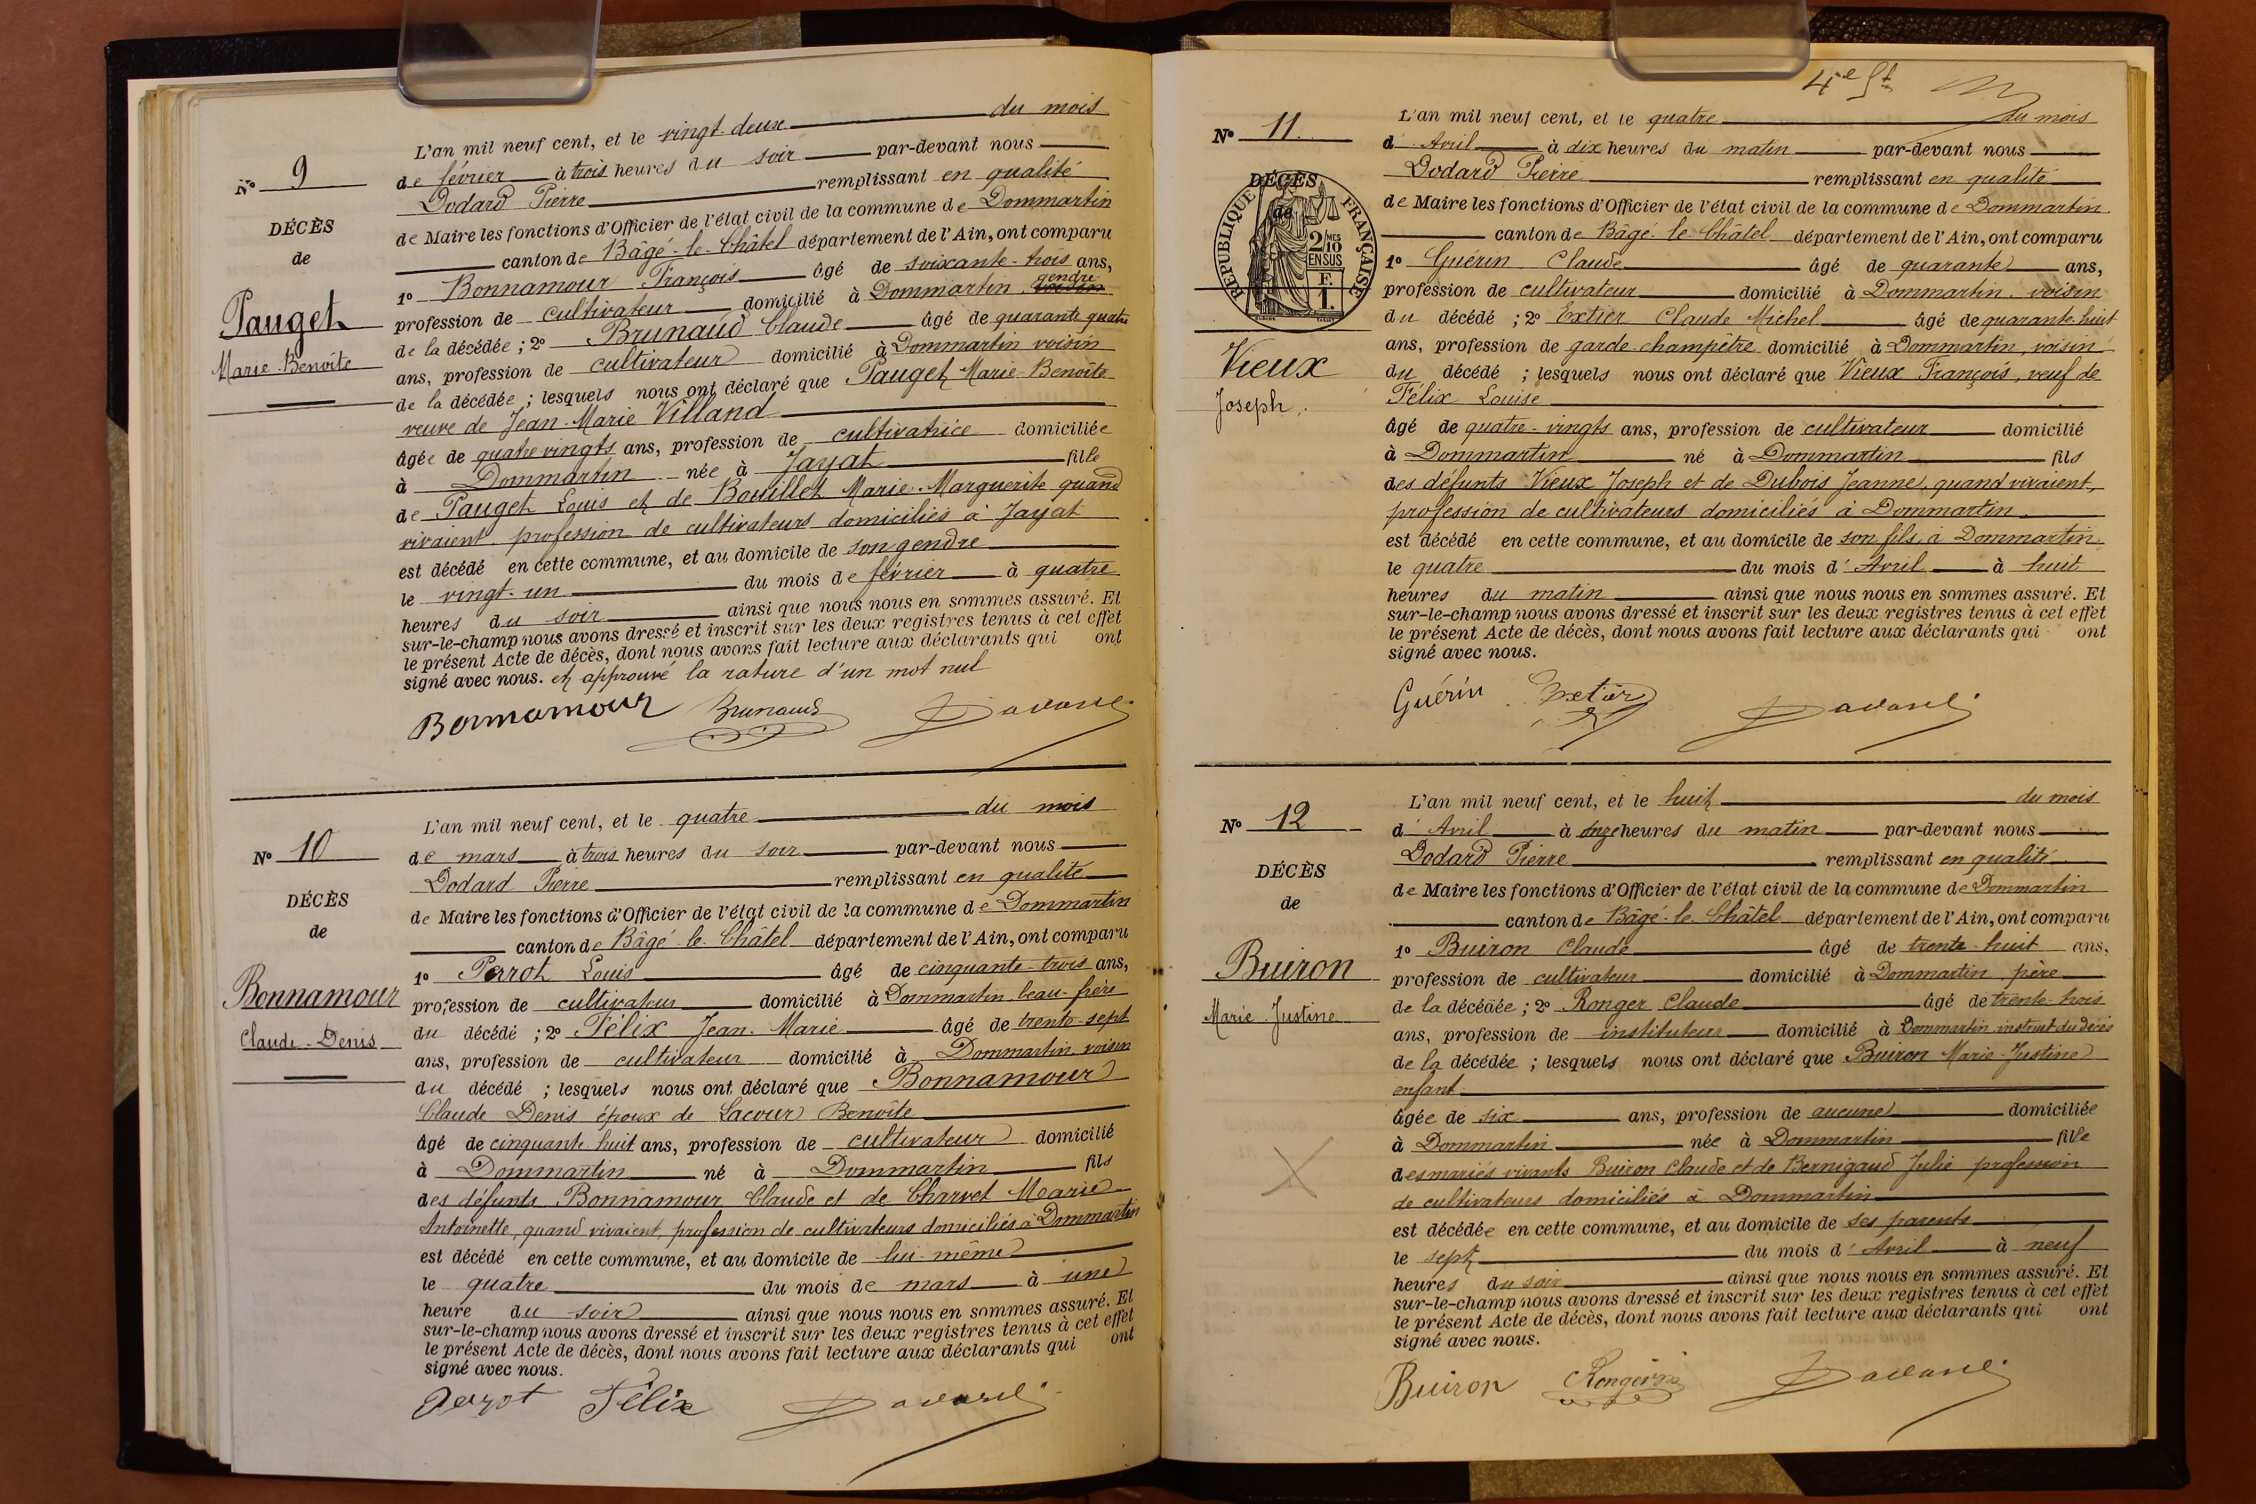 L'an mil neuf cent, et le vingt-deux du mois
Nº 9
de février à trois heures du soir par-devant nous
Dodard Pierre remplissant en qualité
DÉCÈS
de Maire les fonctions d'Officier de l'état civil de la commune de Dommartin
de
canton de Bâgé-le-Châtel département de l'Ain, ont comparu
1º Bonnamour François âgé de soixante-trois ans,
gendre
Pauget
profession de cultivateur domicilié à Dommartin voisin
de la décédée ; 2º Brunaud Claude âgé de quarante quatre
Marie-Benoîte
ans, profession de cultivateur domicilié à Dommartin voisin
de la décédée ; lesquels nous ont déclaré que Pauget Marie-Benoîte
veuve de Jean-Marie Villand
âgée de quatre vingts ans, profession de cultivatrice domiciliée
à Dommartin née à Jayat fille
de Pauget Louis et de Bouillet Marie-Marguerite quand
vivaient profession de cultivateurs domiciliés à Jayat
est décédé en cette commune, et au domicile de son gendre
le vingt-un du mois de février à quatre
heures du soir ainsi que nous nous en sommes assuré. Et
sur-le-champ nous avons dressé et inscrit sur les deux registres tenus à cet effet
le présent Acte de décès, dont nous avons fait lecture aux déclarants qui ont
signé avec nous. et approuvé la rature d'un mot nul
Bonnamour Brunaud Dodard
L'an mil neuf cent, et le quatre du mois
Nº 10
de mars à trois heures du soir par-devant nous
Dodard Pierre remplissant en qualité
DÉCÈS
de Maire les fonctions d'Officier de l'état civil de la commune de Dommartin
de
canton de Bâgé-le-Châtel département de l'Ain, ont comparu
1º Perrot Louis âgé de cinquante-trois ans,
Bonnamour
profession de cultivateur domicilié à Dommartin beau-frère
Claude-Denis
du décédé ; 2º Félix Jean-Marie âgé de trente-sept
ans, profession de cultivateur domicilié à Dommartin voisin
du décédé ; lesquels nous ont déclaré que Bonnamour
Claude Denis époux de Lacour Benoîte
âgé de cinquante huit ans, profession de cultivateur domicilié
à Dommartin né à Dommartin fils
des défunts Bonnamour Claude et de Charvet Marie
Antoinette, quand vivaient, profession de cultivateurs domiciliés à Dommartin
est décédé en cette commune, et au domicile de lui-même
le quatre du mois de mars à une
heure du soir ainsi que nous nous en sommes assuré. Et
sur-le-champ nous avons dressé et inscrit sur les deux registres tenus à cet effet
le présent Acte de décès, dont nous avons fait lecture aux déclarants qui ont
signé avec nous.
Perrot Félix Dodard
4e
L'an mil neuf cent, et le quatre du mois
Nº 11
d'Avril à dix heures du matin par-devant nous
Dodard Pierre remplissant en qualité
DÉCÈS
de
RÉPUBLIQUE FRANÇAISE
2/10 MES
EN SUS
F.
1.
de Maire les fonctions d'Officier de l'état civil de la commune de Dommartin
canton de Bâgé-le-Châtel département de l'Ain, ont comparu
1º Guérin Claude âgé de quarante ans,
profession de cultivateur domicilié à Dommartin voisin
du décédé ; 2º Extier Claude Michel âgé de quarante-huit
ans, profession de garde-champêtre domicilié à Dommartin, voisin
Vieux
du décédé ; lesquels nous ont déclaré que Vieux François, veuf de
Joseph
Félix Louise
âgé de quatre-vingts ans, profession de cultivateur domicilié
à Dommartin né à Dommartin fils
des défunts Vieux Joseph et de Dubois Jeanne, quand vivaient,
profession de cultivateurs domiciliés à Dommartin
est décédé en cette commune, et au domicile de son fils à Dommartin
le quatre du mois d'Avril à huit
heures du matin ainsi que nous nous en sommes assuré. Et
sur-le-champ nous avons dressé et inscrit sur les deux registres tenus à cet effet
le présent Acte de décès, dont nous avons fait lecture aux déclarants qui ont
signé avec nous.
Guérin Extier Dodard
L'an mil neuf cent, et le huit du mois
Nº 12
d'Avril à onze heures du matin par-devant nous
Dodard Pierre remplissant en qualité
DÉCÈS
de Maire les fonctions d'Officier de l'état civil de la commune de Dommartin
de
canton de Bâgé-le-Châtel département de l'Ain, ont comparu
1º Buiron Claude âgé de trente-huit ans,
Buiron
profession de cultivateur domicilié à Dommartin père
de la décédée ; 2º Ronger Claude âgé de trente-trois
Marie-Justine
ans, profession de instituteur domicilié à Dommartin instruit du décès
de la décédée ; lesquels nous ont déclaré que Buiron Marie-Justine
enfant
âgée de six ans, profession de aucune domiciliée
à Dommartin née à Dommartin fille
des mariés vivants Buiron Claude et de Bernigaud Julie profession
de cultivateurs domiciliés à Dommartin
est décédée en cette commune, et au domicile de ses parents
le sept du mois d'Avril à neuf
heures du soir ainsi que nous nous en sommes assuré. Et
sur-le-champ nous avons dressé et inscrit sur les deux registres tenus à cet effet
le présent Acte de décès, dont nous avons fait lecture aux déclarants qui ont
signé avec nous.
Buiron Dodard